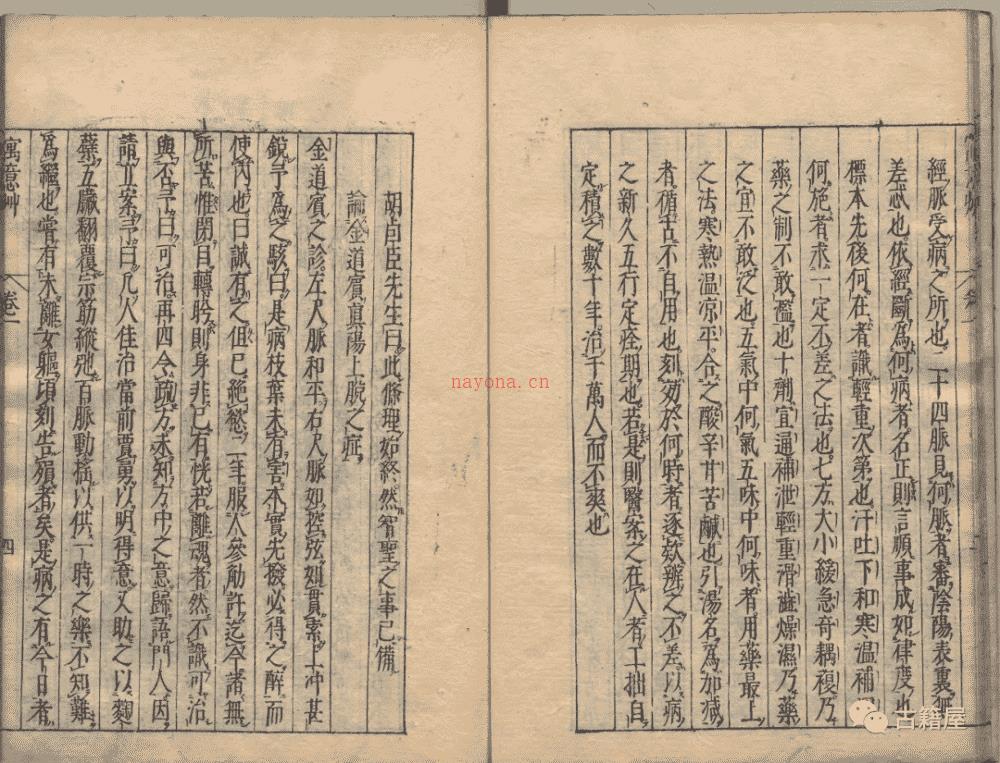 經脈受病之所也二十四脈見何脈者審陰陽表裏無
差忒也依經斷為何病者名正則言順事成如律度也
標本先後何在者識輕重次第也汗吐下和寒溫補
何施者求一定不差之法也七方大小緩急奇耦複乃
藥之制不敢濫也十劑宜通補泄輕重滑澁燥濕乃藥
之宜不敢泛也五氣中何氣五味中何味者用藥最上
之法寒熱溫涼平合之酸辛甘苦鹹也引湯名為加減
者循古不自用也刻効於何時者逐欵辨之不差以病
之新久五行定痊期也若是則醫案之在人者工拙自
定積之數十年治千萬人而不爽也
胡卣臣先生曰此條理始終然智聖之事已備
論金道賓真陽上脫之症
金道賓之診左尺脈和平右尺脈如控弦如貫索上冲甚
銳予為之駭曰是病枝葉未有害本實先撥必得之醉而
使內也曰誠有之但已絕慾二年服人參觔許迄今諸無
所苦惟閉目轉盻則身非已有恍若離魂者然不識可治
與否予曰可治再四令疏方未知方中之意歸語門人因
請立案予曰凡人佳治當前賈勇以明得意又助之以麴
蘖五臟翻覆宗筋縱弛百脈動搖以供一時之樂不知難
為繼也嘗有未離女軀頃刻告殞者矣是病之有今日者
寓意艸
卷一
四
nayona.cn
古籍屋